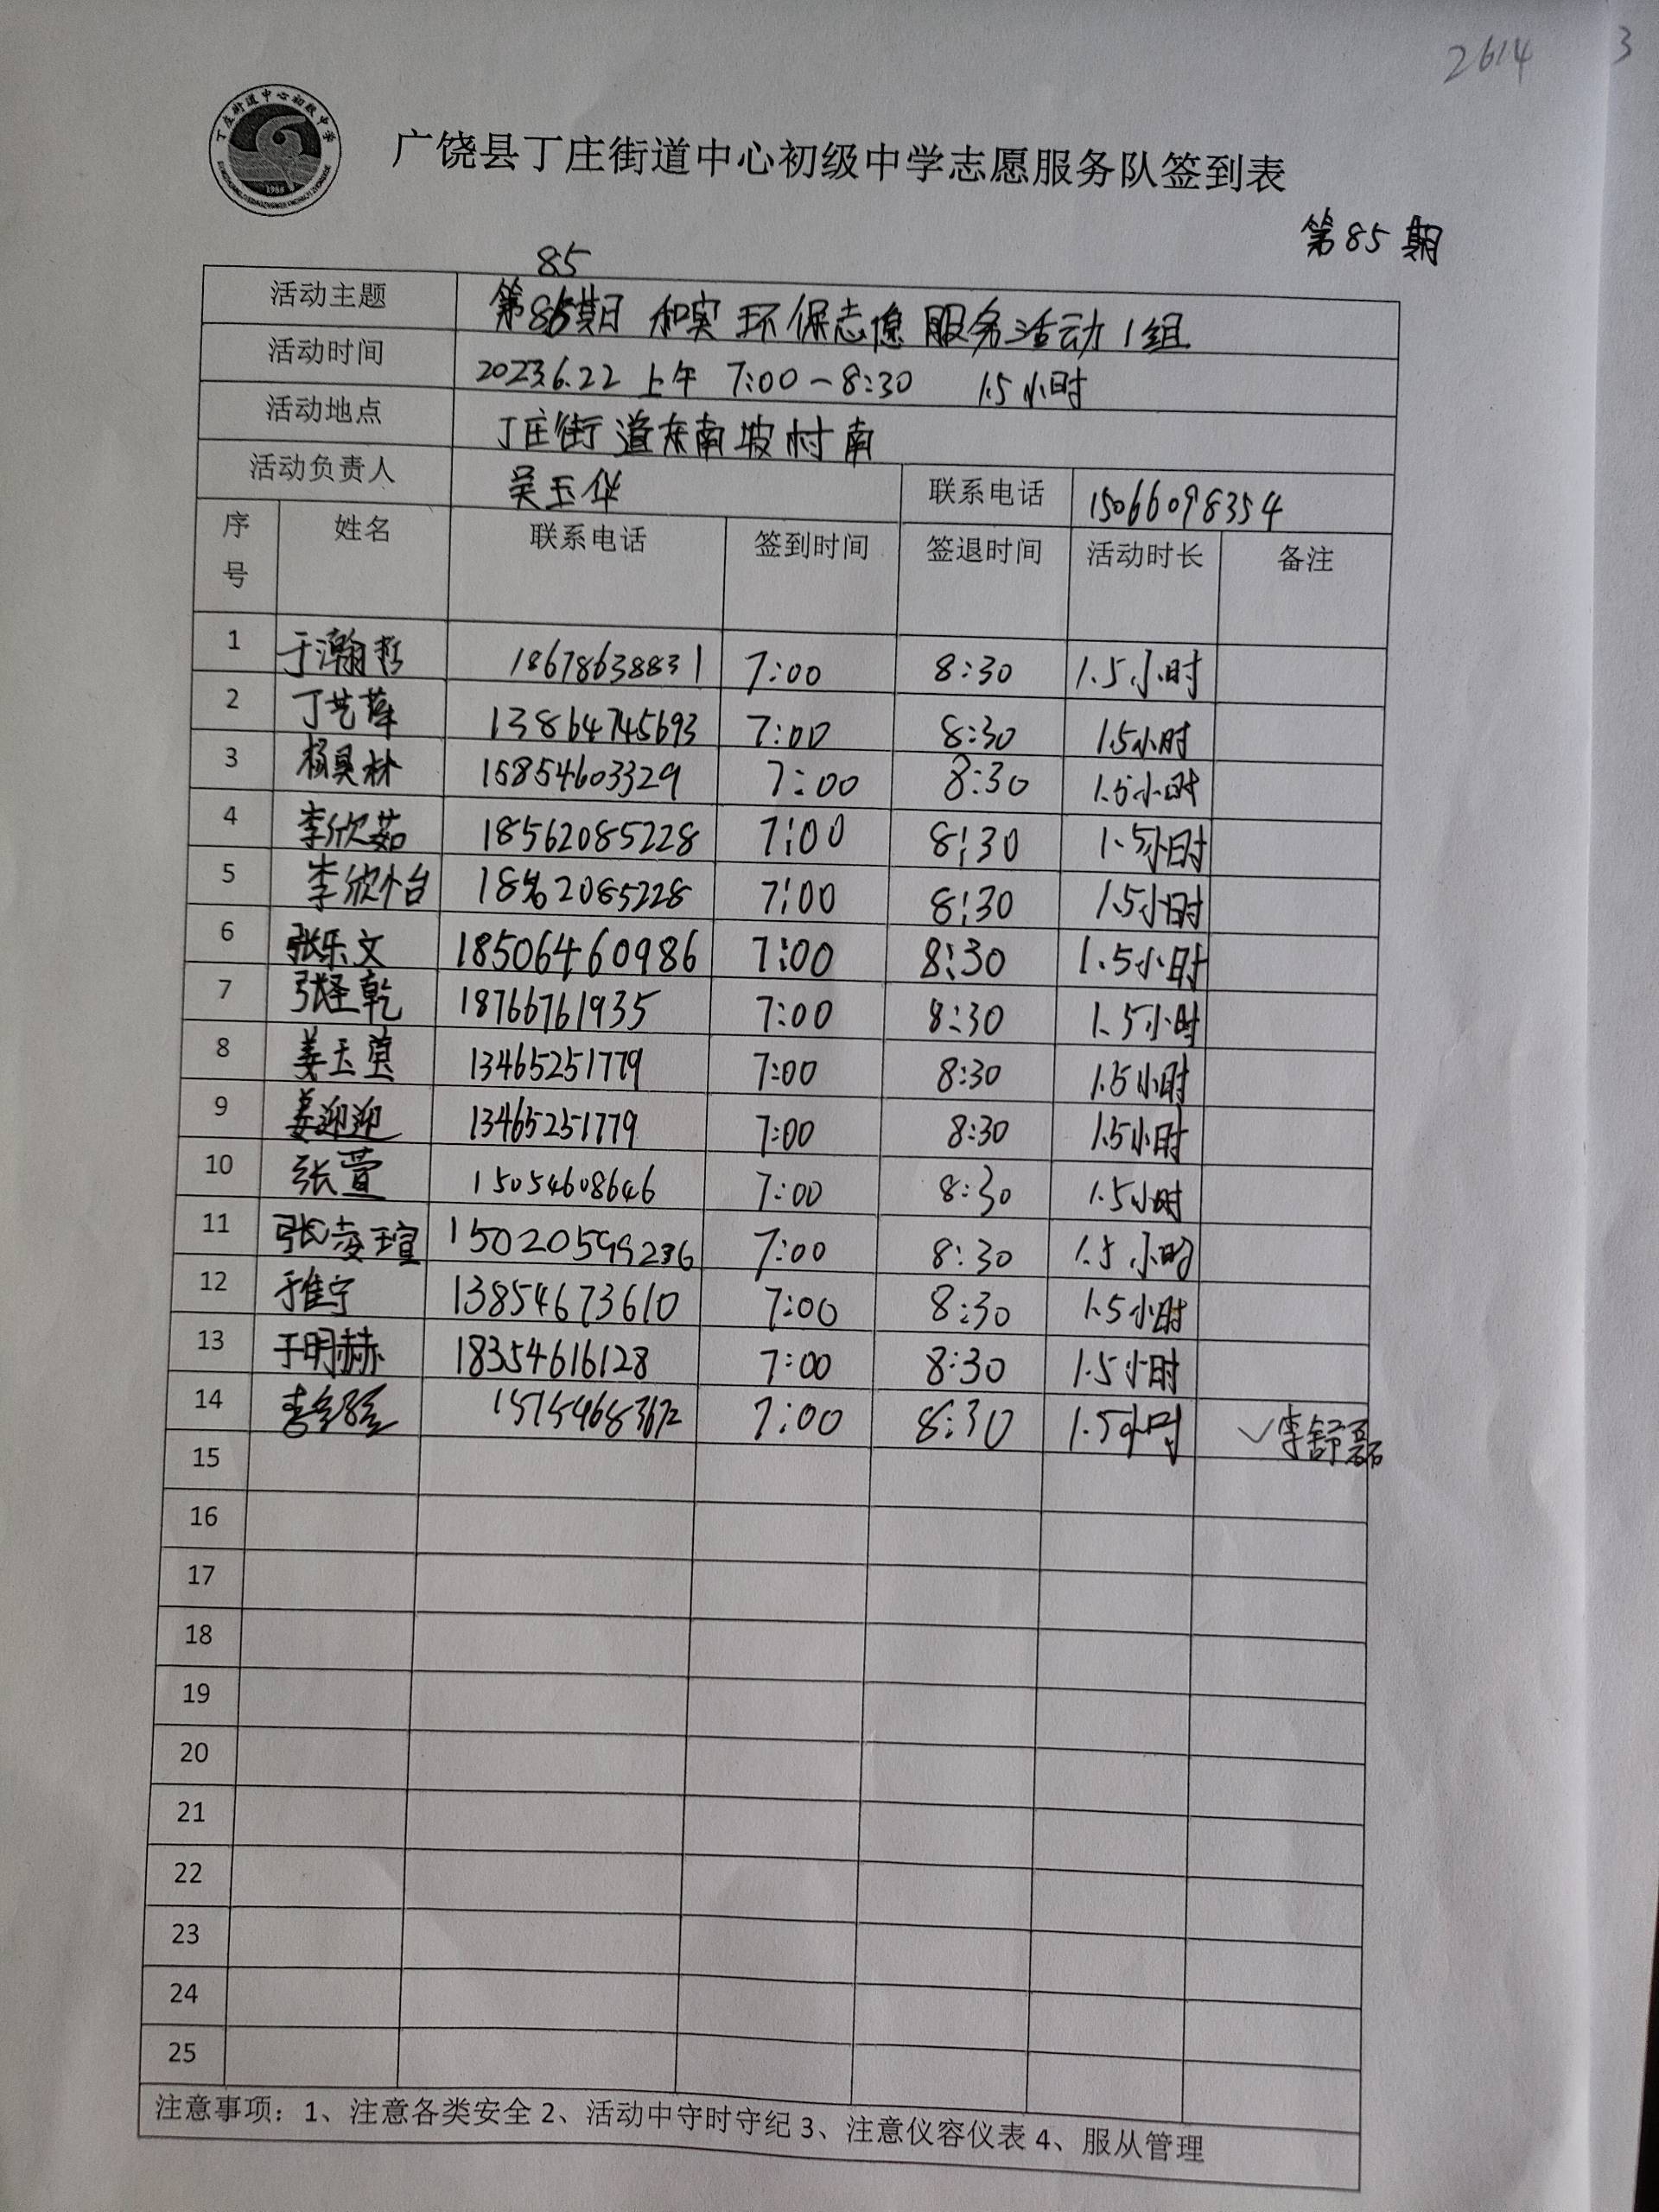 2614 3
丁庄街道中心初级中学
1988
广饶县丁庄街道中心初级中学志愿服务队签到表
第85期
85
活动主题 第85期日 和实环保志愿服务活动1组
活动时间 2023.6.22 上午 7:00-8:30 1.5小时
活动地点 丁庄街道东南坡村南
活动负责人 吴玉华 联系电话 15066098354
序号 姓名 联系电话 签到时间 签退时间 活动时长 备注
1 于瀚哲 18678638831 7:00 8:30 1.5小时
2 丁艺萍 13864745693 7:00 8:30 1.5小时
3 杨昊林 15854603329 7:00 8:30 1.5小时
4 李欣茹 18562085228 7:00 8:30 1.5小时
5 李欣怡 18562085228 7:00 8:30 1.5小时
6 张乐文 18506460986 7:00 8:30 1.5小时
7 张圣乾 18766761935 7:00 8:30 1.5小时
8 姜玉莹 13465251779 7:00 8:30 1.5小时
9 姜迎迎 13465251779 7:00 8:30 1.5小时
10 张萱 15054608646 7:00 8:30 1.5小时
11 张凌瑄 15020599236 7:00 8:30 1.5小时
12 于佳宁 13854673610 7:00 8:30 1.5小时
13 于明赫 18354616128 7:00 8:30 1.5小时
14 7:00 8:30 1.5小时 ✓李舒磊
15
16
17
18
19
20
21
22
23
24
25
注意事项：1、注意各类安全 2、活动中守时守纪 3、注意仪容仪表 4、服从管理